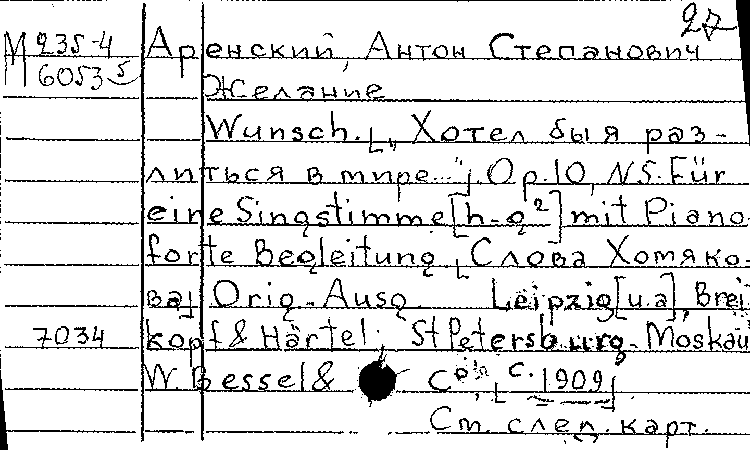 27
М 235-4 Аренский, Антон Степанович
6053 5
Желание
Wunsch. [„Хотел бы я раз-
литься в мире..."]. Op. 10, N5. Für
eine Singstimme [h-g²] mit Piano-
forte Begleitung [Слова Хомяко-
ва] Orig.-Ausg. Leipzig [u.a], Brei
7034 kopf & Härtel; St Petersburg-Moskau
W. Bessel & Co, [c. 1909]
См. след. карт.